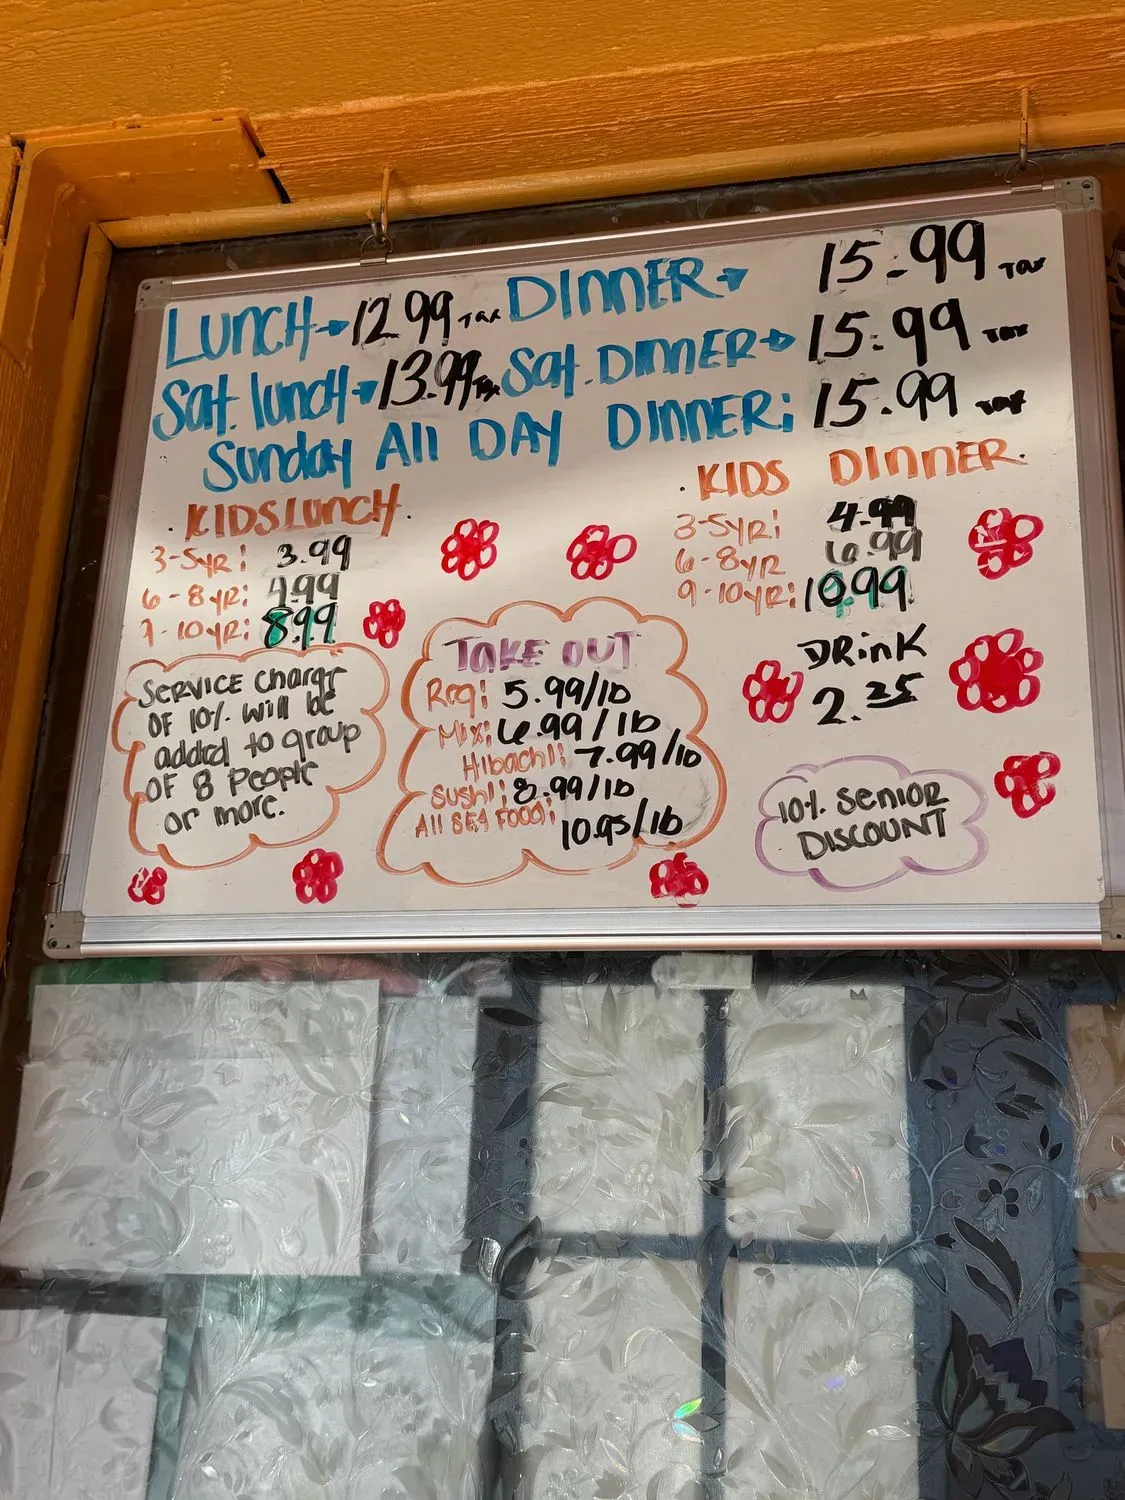 Lunch → 12.99 Tax DINNER → 15.99 Tax
Sat. lunch → 13.99 Tax Sat. DINNER → 15.99 Tax
Sunday All DAY DINNER: 15.99 Tax
. KIDS Lunch .
3-5yr: 3.99
6-8yr: 4.99
9-10yr: 8.99
. KIDS DINNER.
3-5yr: 4.99
6-8yr 6.99
9-10yr: 10.99
DRinK
2.25
SERVICE charge
OF 10% will be
added to group
OF 8 People
or more.
TAKE OUT
Reg: 5.99/lb
Mix: 6.99/lb
Hibachi: 7.99/lb
Sushi: 8.99/lb
All SEA FOOD: 10.95/lb
10% SENIOR
DISCOUNT